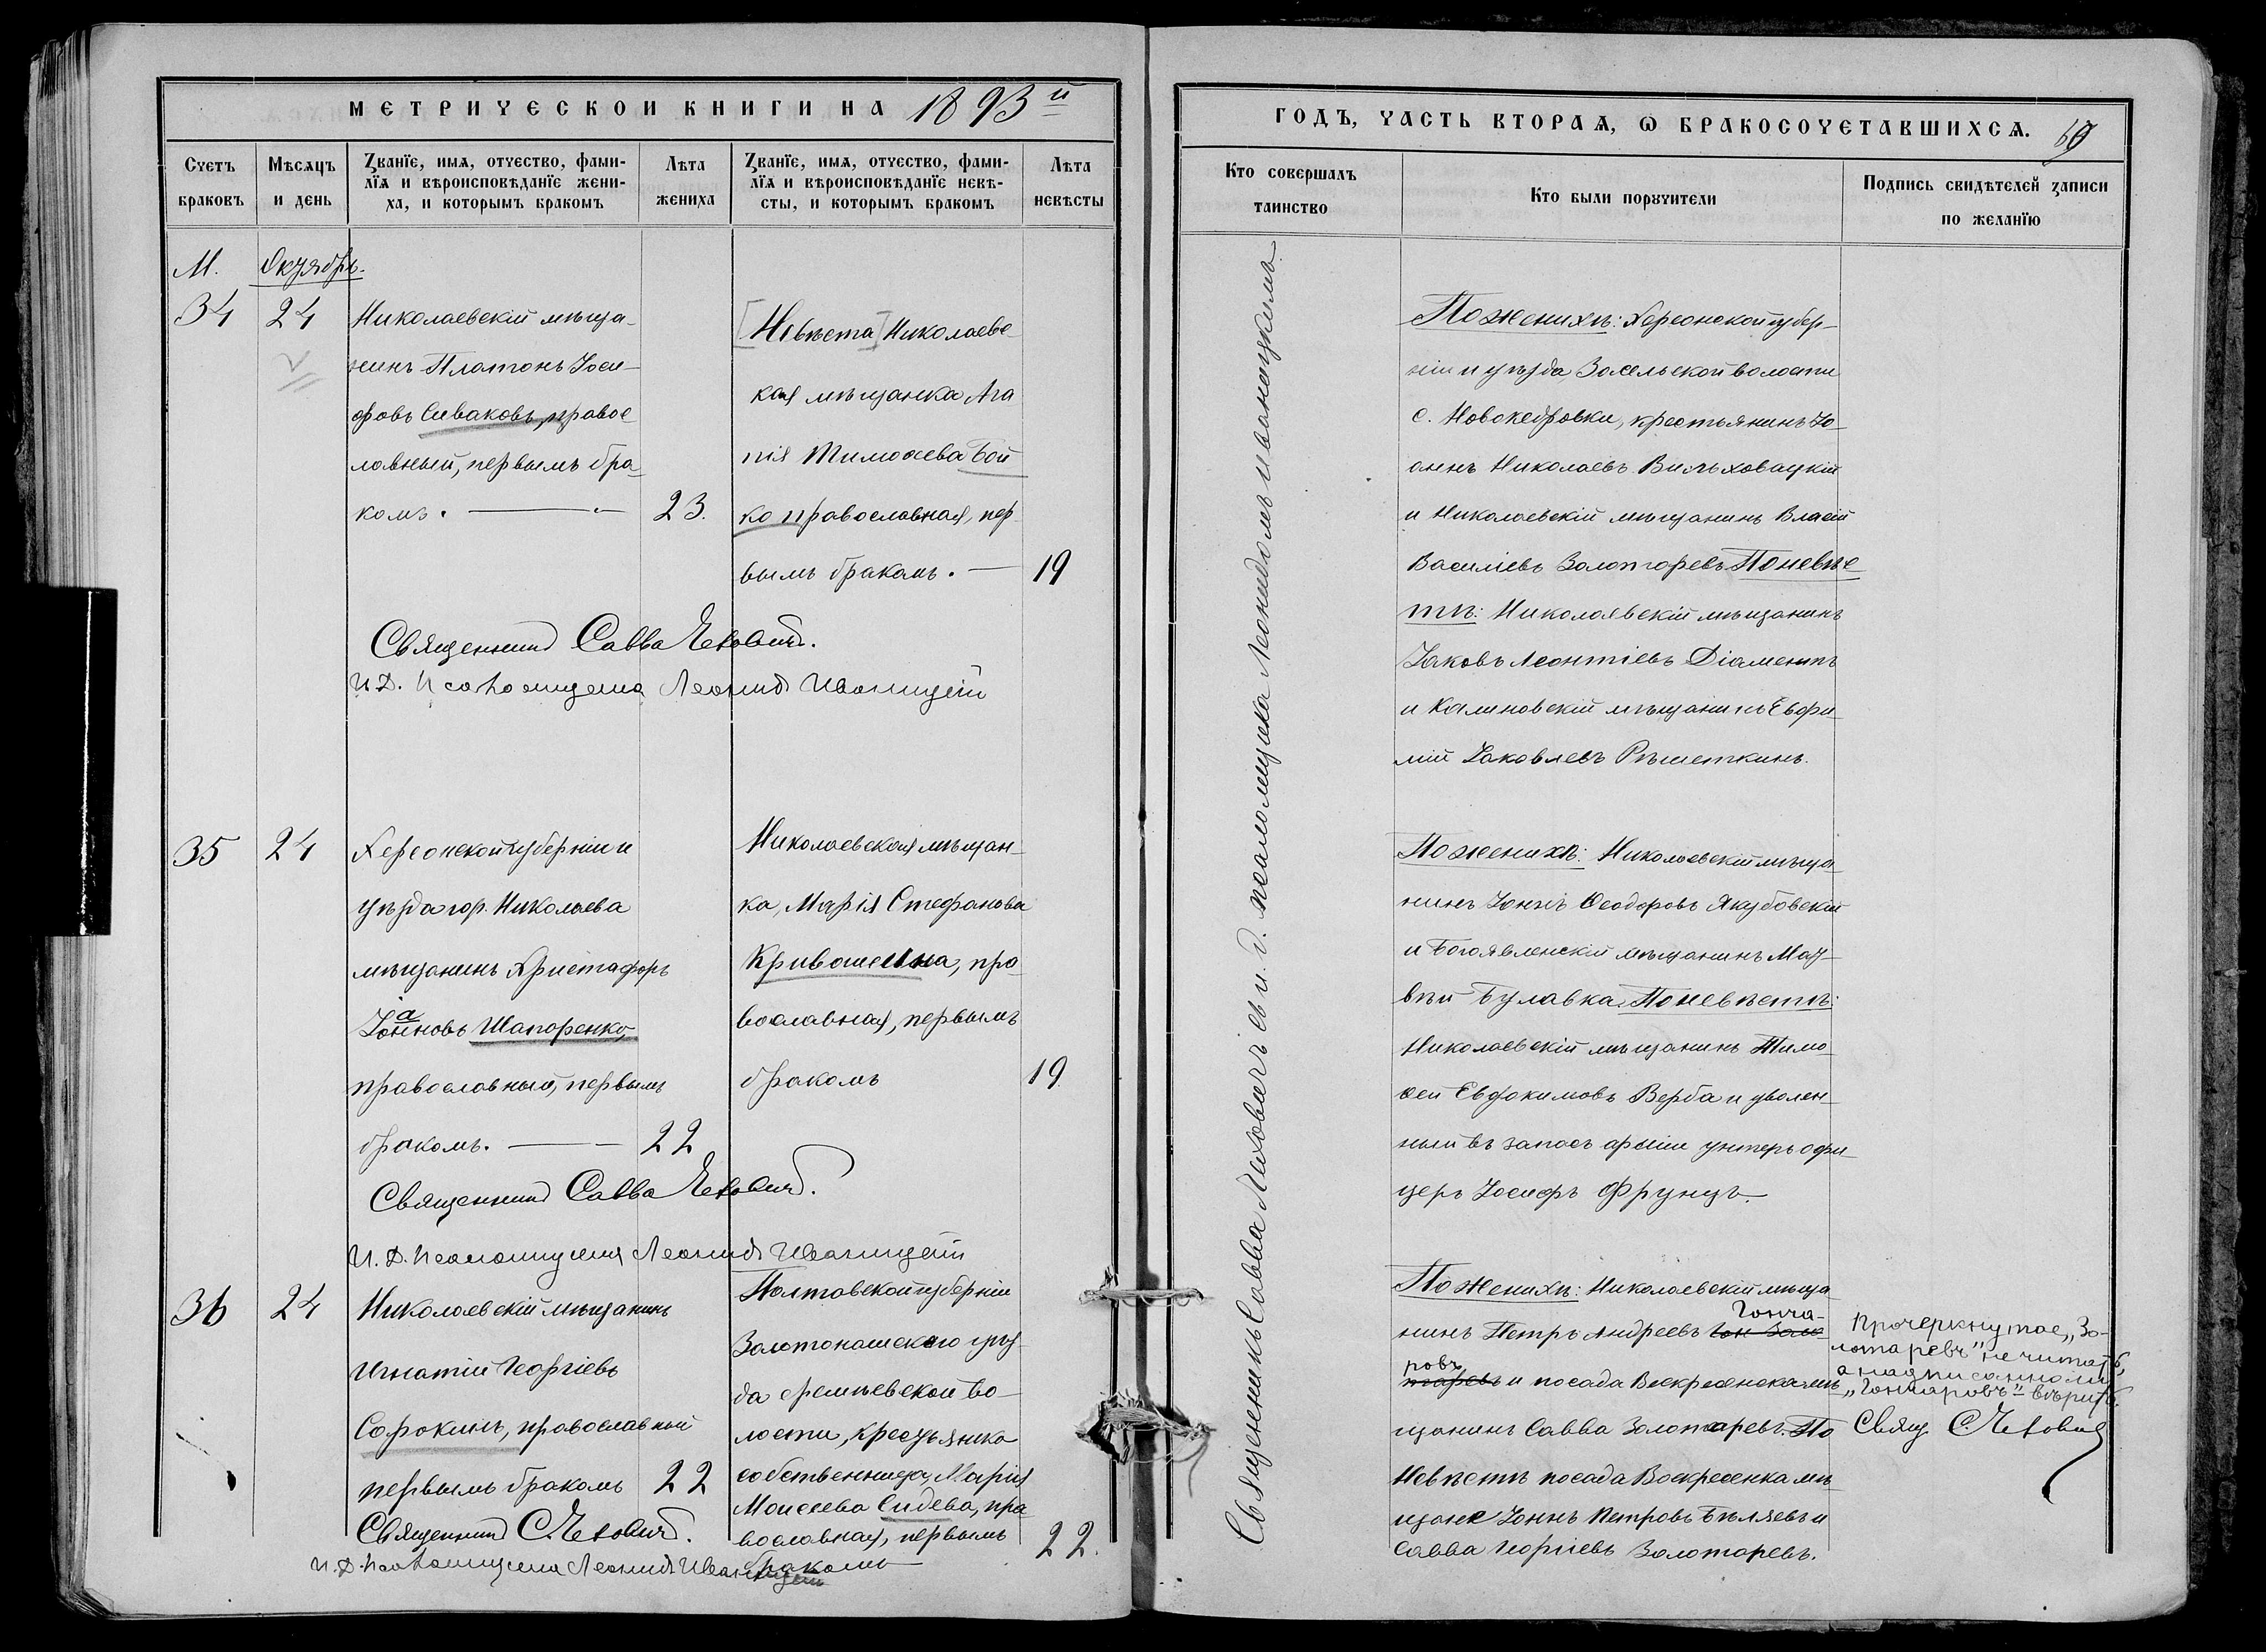 МЕТРИЧЕСКОЙ КНИГИ НА 1893й
ГОДЪ, ЧАСТЬ ВТОРАѦ, Ѡ БРАКОСОЧЕТАВШИХСѦ.
Счетъ браковъ
Мѣсѧцъ и день
Званїе, имѧ, отчество, фами-
лїѧ и вѣроисповѣданїе жени-
ха, и которымъ бракомъ
Лѣта жениха
Званїе, имѧ, отчество, фами-
лїѧ и вѣроисповѣданїе невѣ-
сты, и которымъ бракомъ
Лѣта невѣсты
Кто совершалъ таинство
Кто были порꙋчители
Подпись свидѣтелей записи
по желанїю
М.
Октябрь.
34
24
Николаевскій мѣща-
нинъ Платонъ Іоси-
фовъ Сиваковъ, правос
лавный, первымъ бра-
комъ.
23.
[Невѣста] Николаевс
кая мѣщанка Ага
пія Тимоѳеева Бой
ко православная, пер
вымъ бракомъ.
19
Священникъ Савва
И.Д. Псаломщика Леонидъ Иваницкій
По женихѣ: Херсонской губер-
ніи и уѣзда, Засельской волости
с. Новопетровки, крестьянинъ Іо-
аннъ Николаевъ Вильховацкій
и Николаевскій мѣщанинъ Власій
Василіевъ Золотаревъ По невѣс
тѣ: Николаевскій мѣщанинъ
Іаковъ Леонтіевъ Діаментъ
и Калиновскій мѣщанинъ Евфи
мій Іаковлевъ Рѣшеткинъ.
35
24
Херсонской губерніи и
уѣзда гор. Николаева
мѣщанинъ Христофоръ
Іоанновъ Шапоренко,
православный, первымъ
бракомъ.
22
Николаевская мѣщан-
ка, Марія Стефанова
Кривошеина, пра
вославная, первымъ
бракомъ
19
Священникъ Савва
И.Д. Псаломщика Леонидъ Иваницкій
По женихѣ: Николаевскій мѣща
нинъ Іоаннъ Ѳеодоровъ Якубовскій
и Богоявленскій мѣщанинъ Мат-
вѣй Булавка. По невѣстѣ:
Николаевскій мѣщанинъ Тимо
ѳей Евдокимовъ Верба и уволен-
ный въ запасъ арміи унтеръ офи
церъ Іосифъ Фрунцъ.
36
24
Николаевскій мѣщанинъ
Игнатій Георгіевъ
Сорокинъ, православный
первымъ бракомъ
22
Полтавской губерніи
Золотоношскаго уѣз
да
лости, крестьянка
собственница, Марія
Моисеева Сидева, пра
вославная, первымъ
бракомъ
22.
Священникъ С.
И.Д. Псаломщика Леонидъ Иваницкій
По женихѣ: Николаевскій мѣща
нинъ Петръ Андреевъ Гонча-
ровъ и посада Воскресенска мѣ
щанинъ Савва Золотаревъ. По
невѣстѣ посада Воскресенска мѣ
щане Іоаннъ Петровъ Бѣляевъ и
Савва Георгіевъ Золотаревъ.
Прочеркнутое „Зо-
лотаревъ" не читать,
а надписанному
„Гончаровъ" вѣрить.
Свящ. С.
Священникъ Савва и. д. псаломщика Леонидомъ Иваницкимъ